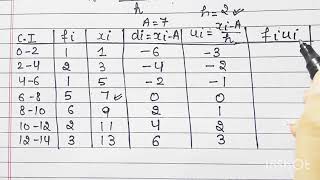 h
A=7
h=2
C.I fi xi di=xi-A ui=xi-A/h fiui
0-2 1 1 -6 -3
2-4 2 3 -4 -2
4-6 1 5 -2 -1
6-8 5 7 0 0
8-10 6 9 2 1
10-12 2 11 4 2
12-14 3 13 6 3